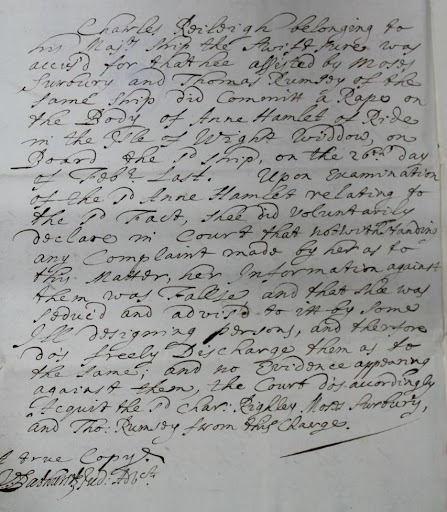 Charles Reileigh belonging to
his Maj:ts Ship the Swiftsure was
accus'd for that hee assisted by Moses
Surbury and Thomas Rumsey of the
same Ship did Committ a Rape on
the Body of Anne Hamlet of Ride
in the Isle of Wight Widdow, on
Board the sd Ship, on the 26th day
of Feb:ry Last. Upon Examination
of the sd Anne Hamlet relating to
the sd Fact, shee did voluntarily
declare in Court that notwithstanding
any Complaint made by her as to
this Matter, her Information against
them was Fallse and that shee was
seduc'd and advis'd to itt by some
Ill designing persons, and therefore
dos freely Discharge them as to
the same; and no Evidence appearing
against them, the Court dos accordingly
Acquit the sd Char: Righley Moses Surbury,
and Tho: Rumsey from this Charge.
A true Copy.
Jud: Adv:t